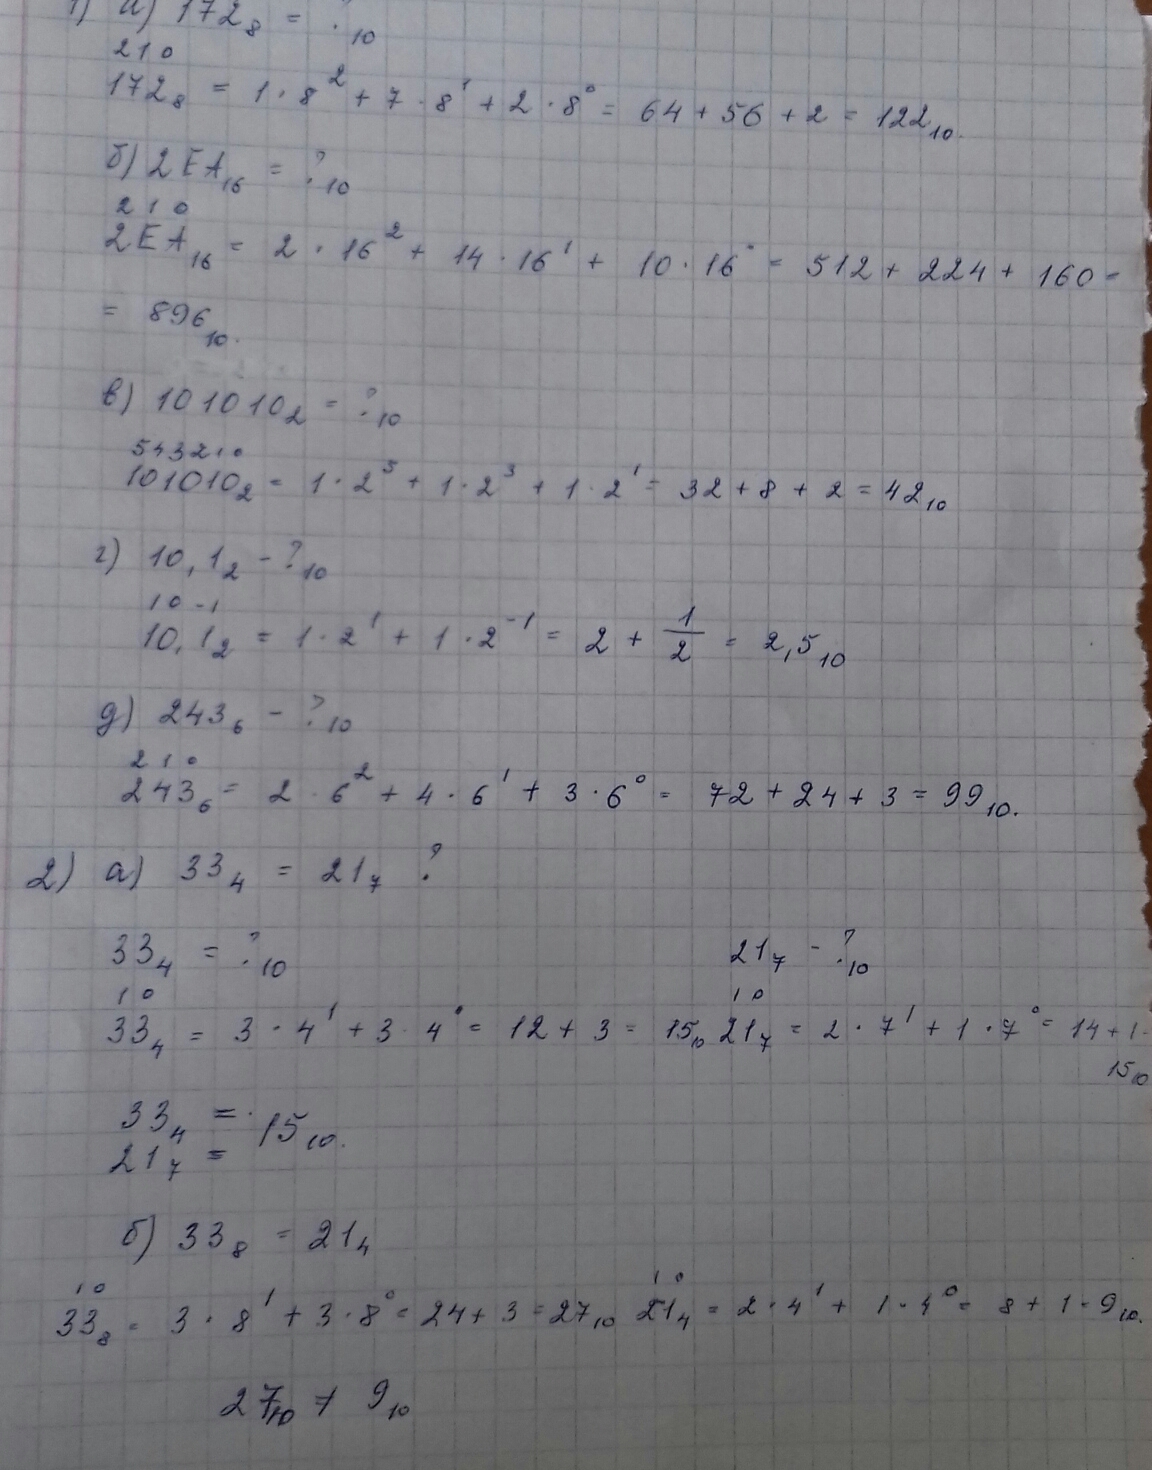 1) а) 172₈ = ?₁₀
2 1 0
172₈ = 1·8² + 7·8¹ + 2·8⁰ = 64 + 56 + 2 = 122₁₀.
б) 2EA₁₆ = ?₁₀
2 1 0
2EA₁₆ = 2·16² + 14·16¹ + 10·16⁰ = 512 + 224 + 160 =
= 896₁₀.
в) 101010₂ = ?₁₀
5 4 3 2 1 0
101010₂ = 1·2⁵ + 1·2³ + 1·2¹ = 32 + 8 + 2 = 42₁₀
г) 10,1₂ - ?₁₀
1 0 -1
10,1₂ = 1·2¹ + 1·2⁻¹ = 2 + 1/2 = 2,5₁₀
д) 243₆ - ?₁₀
2 1 0
243₆ = 2·6² + 4·6¹ + 3·6⁰ = 72 + 24 + 3 = 99₁₀.
2) а) 33₄ = 21₇ ?
33₄ = ?₁₀ 21₇ - ?₁₀
1 0 1 0
33₄ = 3·4¹ + 3·4⁰ = 12 + 3 = 15₁₀ 21₇ = 2·7¹ + 1·7⁰ = 14 + 1 =
15₁₀
33₄ =
15₁₀.
21₇ =
б) 33₈ = 21₄
1 0 1 0
33₈ = 3·8¹ + 3·8⁰ = 24 + 3 = 27₁₀ 21₄ = 2·4¹ + 1·4⁰ = 8 + 1 = 9₁₀.
27₁₀ ≠ 9₁₀